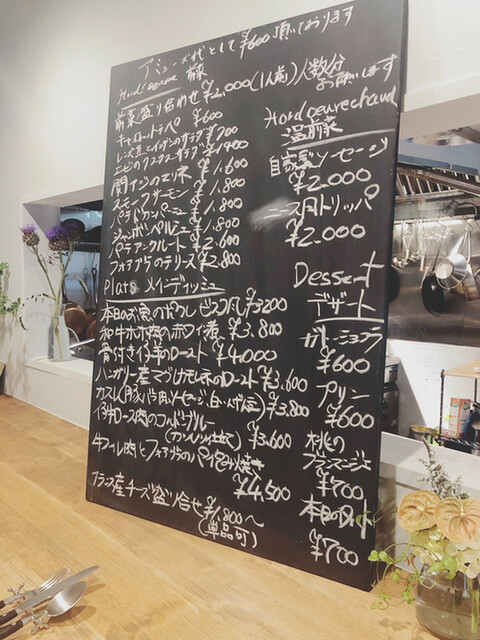 アミューズ代として¥600頂いております
Hord'oeuvre 前菜
前菜盛り合わせ ¥2,000(1人前)人数分お願いします
キャロットラペ ¥600
レンズ豆とインゲンのサラダ ¥700
エビのクスクスサラダ ¥1,400
関アジのマリネ ¥1,600
スモークサーモン ¥1,800
パテドカンパーニュ ¥1,800
ジャンボンペルシェ ¥1,800
パテアンクルート ¥2,600
フォアグラのテリーヌ ¥2,800
Plats メインディッシュ
本日のお魚のポワレ ビスク風 ¥3200
和牛ホホ肉の赤ワイン煮 ¥3,800
骨付き仔羊のロースト ¥4,000
ハンガリー産マグレカモムネ肉のロースト ¥3,600
カスレ(豚バラ肉、ソーセージ、白いんげん豆) ¥3,800
仔牛ロース肉のコルドンブルー
(カツレツ仕立て) ¥3,600
牛フィレ肉とフォアグラのパイ包み焼き
¥4,500
フランス産チーズ盛り合せ ¥1,800〜
(単品可)
Hord'oeuvre chaud
温前菜
自家製ソーセージ
¥2,000
ニース風トリッパ
¥2,000
Dessert
デザート
ガトーショコラ
¥600
プリン
¥600
桃の
ブランマンジェ
¥700
本日のタルト
¥700